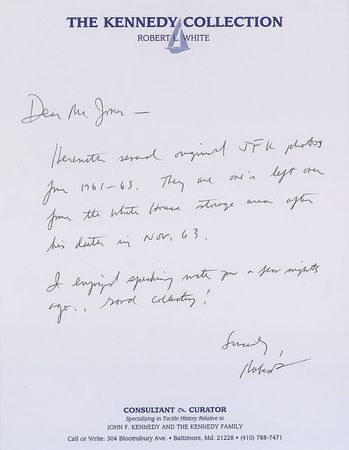 THE KENNEDY COLLECTION
ROBERT L. WHITE
Dear Mr. Jones —
Herewith several original JFK photos
from 1961-63. They are one's left over
from the White House storage area after
his death in Nov. 63.
I enjoyed speaking with you a few nights
ago.. Good collecting!
Sincerely,
Robert
CONSULTANT ~ CURATOR
Specializing in Tactile History Relative to
JOHN F. KENNEDY AND THE KENNEDY FAMILY
Call or Write: 304 Bloomsbury Ave. • Baltimore, Md. 21228 • (410) 788-7471